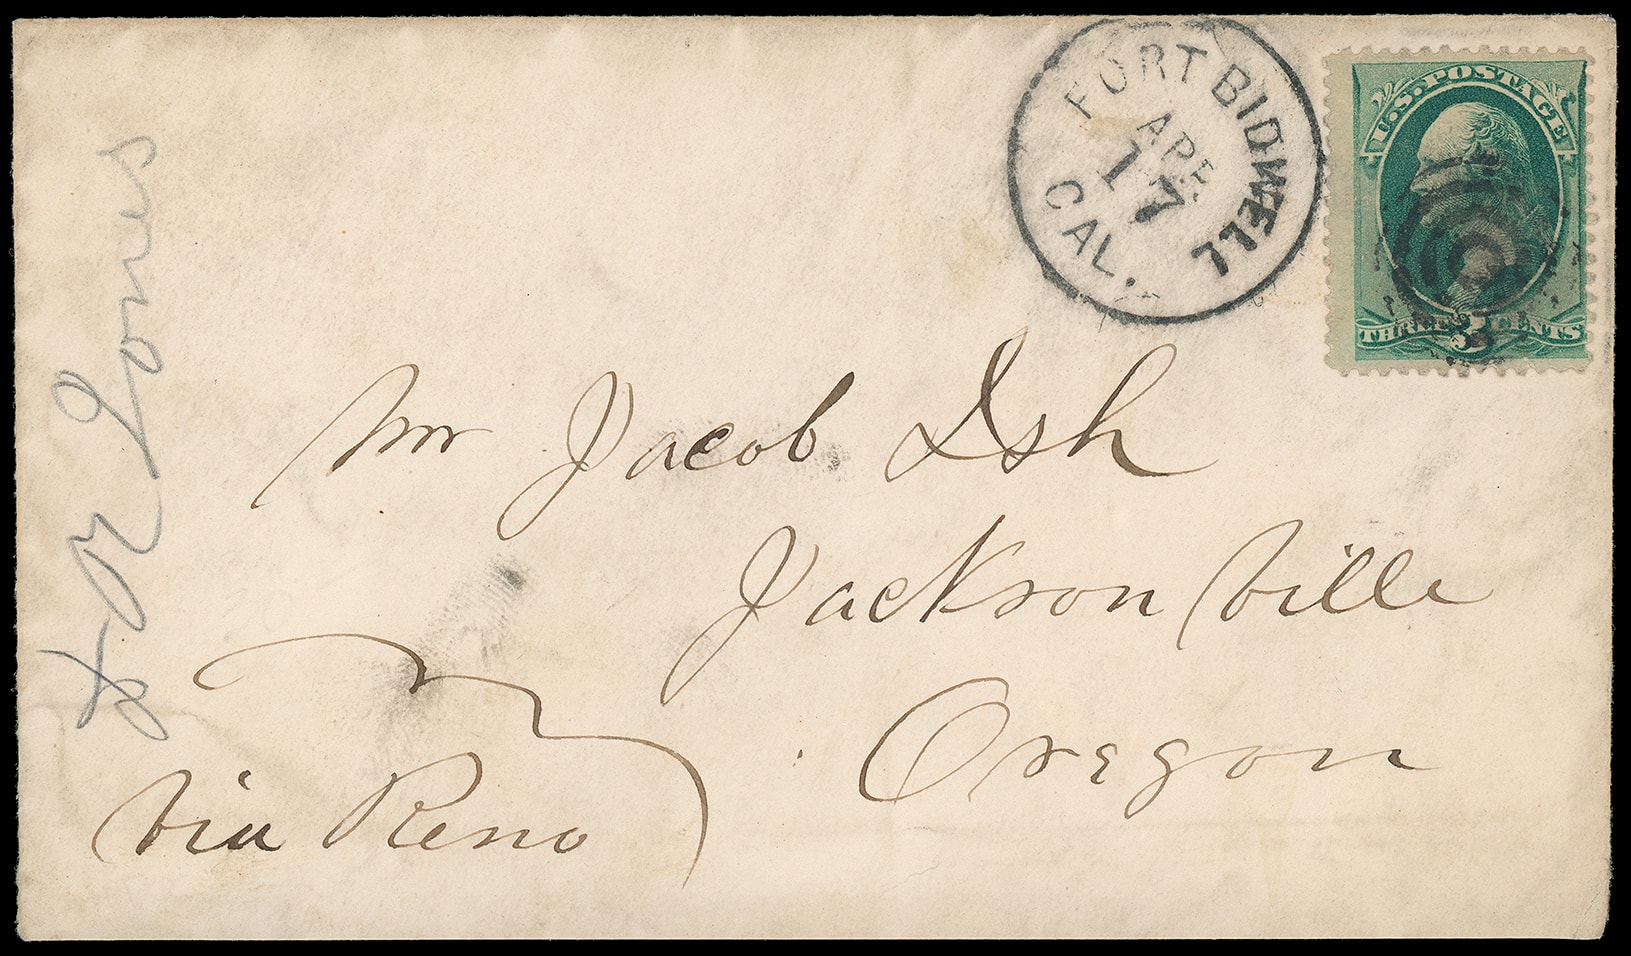 FORT BIDWELL
APR
17
CAL.
U.S. POSTAGE
THREE 3 CENTS
Mr Jacob Ish
Jacksonville
Oregon
via Reno
Jones